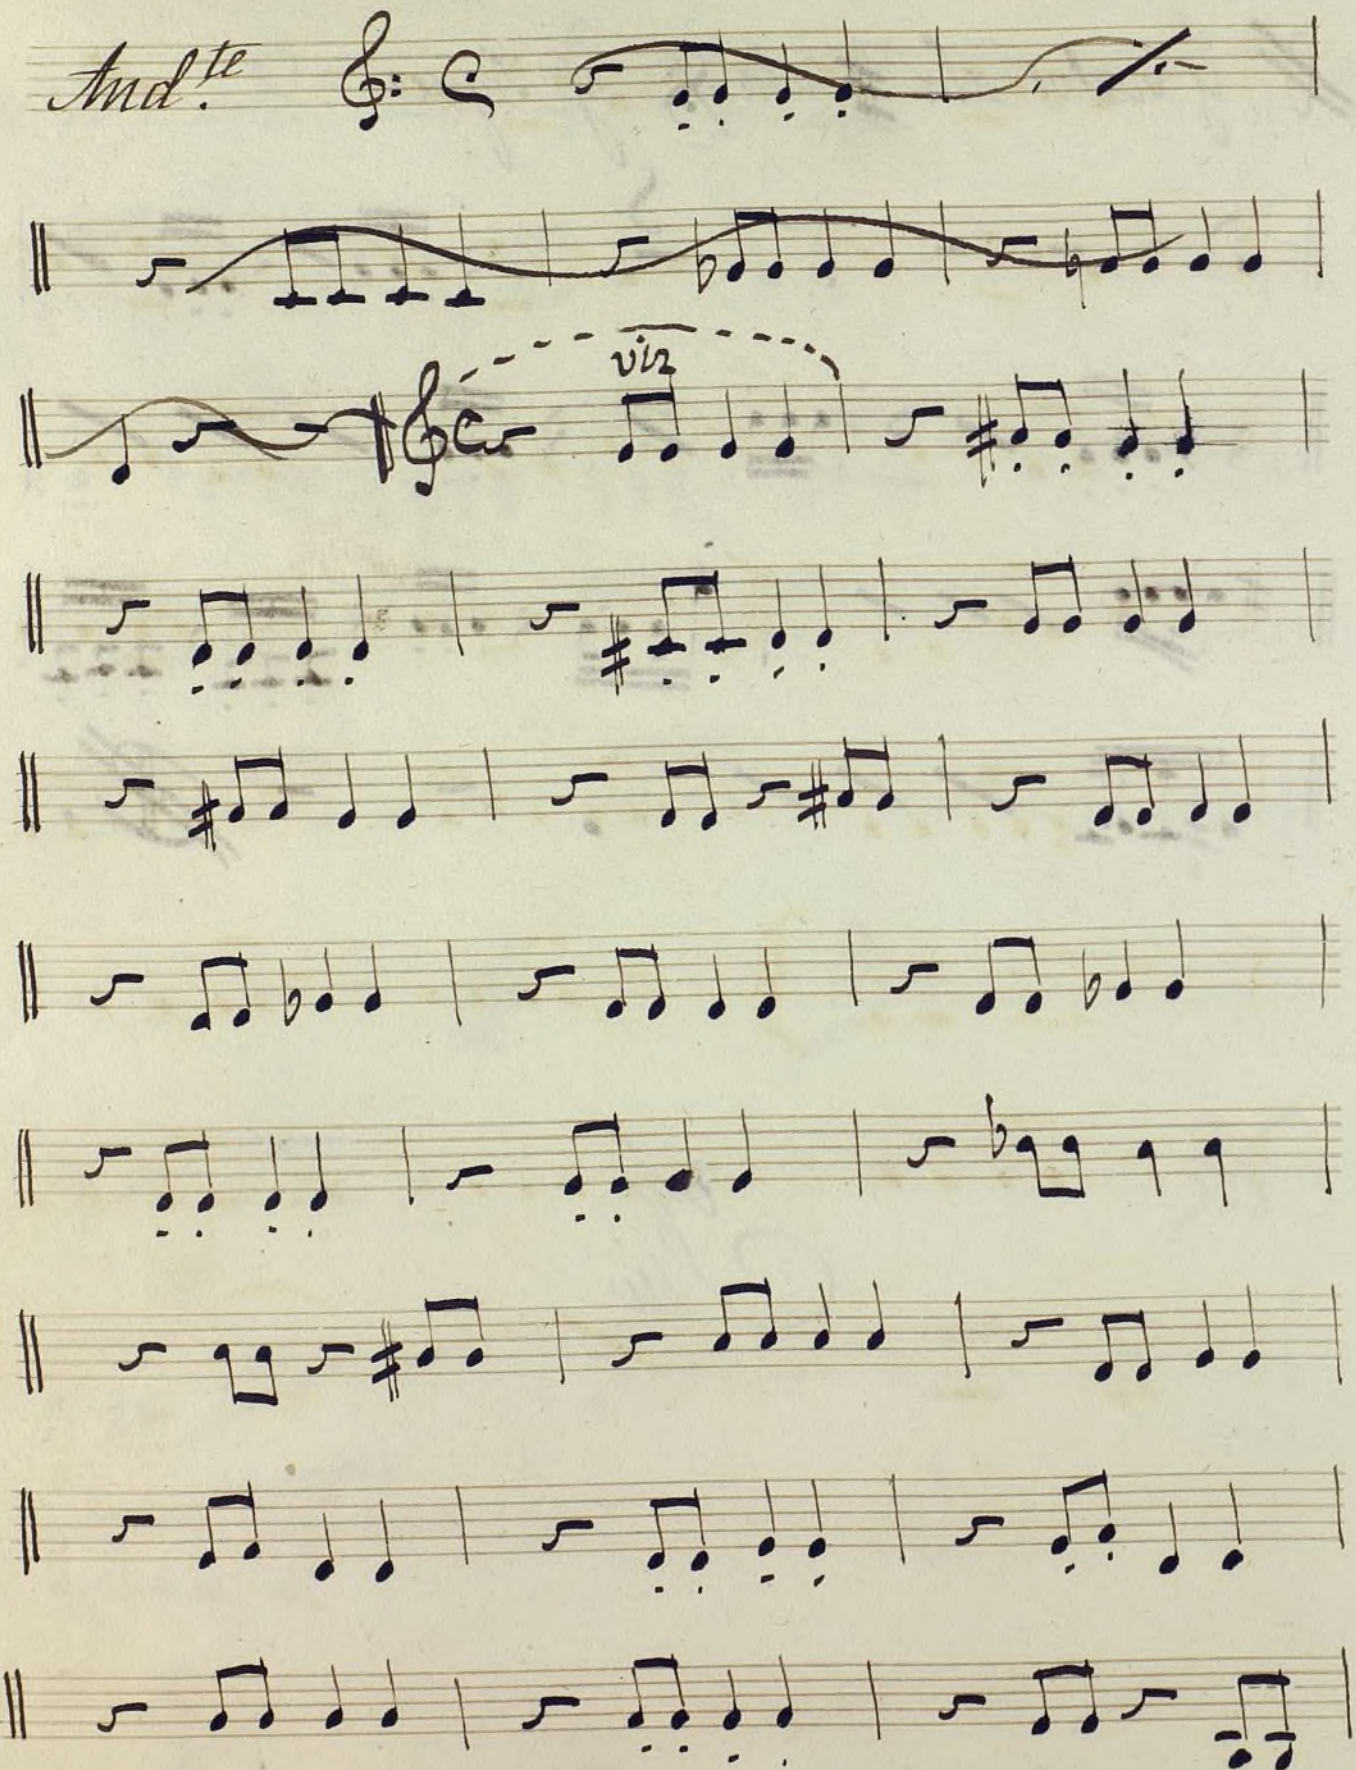 And.te
viz